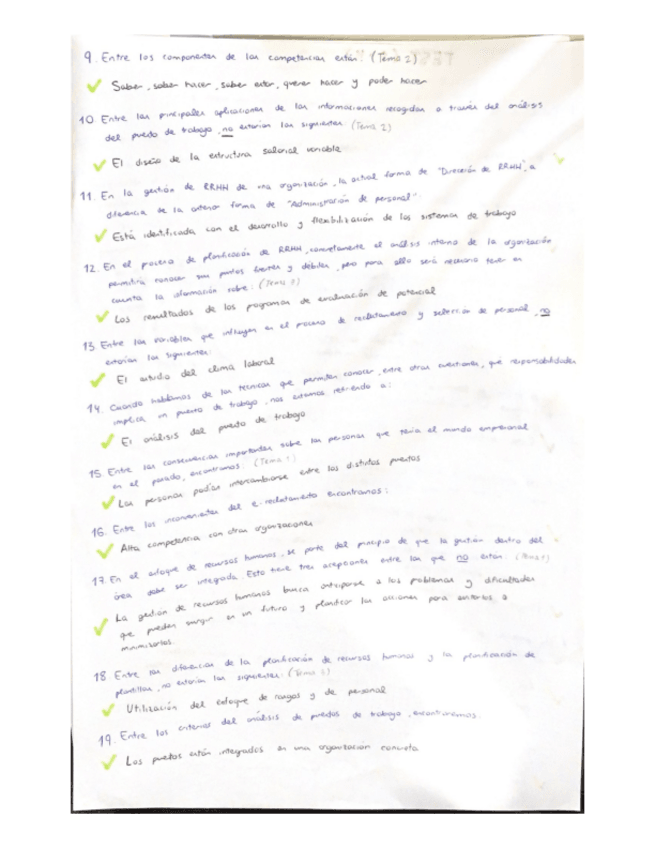 9. Entre los componentes de las competencias están: (Tema 2)
Saber, saber hacer, saber estar, querer hacer y poder hacer
10. Entre las principales aplicaciones de las informaciones recogidas a través del análisis
del puesto de trabajo, no estarían las siguientes: (Tema 2)
El diseño de la estructura salarial variable
11. En la gestión de RRHH de una organización, la actual forma de "Dirección de RRHH", a
diferencia de la anterior forma de "Administración de personal".
Está identificada con el desarrollo y flexibilización de los sistemas de trabajo
12. En el proceso de planificación de RRHH, concretamente el análisis interno de la organización
permitirá conocer sus puntos fuertes y débiles, pero para ello será necesario tener en
cuenta la información sobre: (Tema
Los resultados de los programas de evaluación de potencial
13. Entre las variables que influyen en el proceso de reclutamiento y selección de personal, no
estarían las siguientes:
El estudio del clima laboral
14. Cuando hablamos de las técnicas que permiten conocer, entre otras cuestiones, que responsabilidades
implica un puesto de trabajo, nos estamos refiriendo a:
El análisis del puesto de trabajo
15. Entre las consecuencias importantes sobre las personas que tenía el mundo empresarial
en el pasado, encontramos: (Tema 1)
Las personas podían intercambiarse entre los distintos puestos
16. Entre los inconvenientes del e-reclutamiento encontramos:
Alta competencia con otras organizaciones
17. En el enfoque de recursos humanos, se parte del principio de que la gestión dentro del
área debe ser integrada. Esto tiene tres acepciones entre las que no están: (Tema
La gestión de recursos humanos busca anticiparse a los problemas y dificultades
que puedan surgir en un futuro y planificar las acciones para evitarlos o
minimizarlos.
18. Entre las diferencias de la planificación de recursos humanos y la planificación de
plantillas, no estarían las siguientes: (Tema
Utilización del enfoque de rasgos y de personal
19. Entre los criterios del análisis de puestos de trabajo, encontraremos:
Los puestos están integrados en una organización concreta